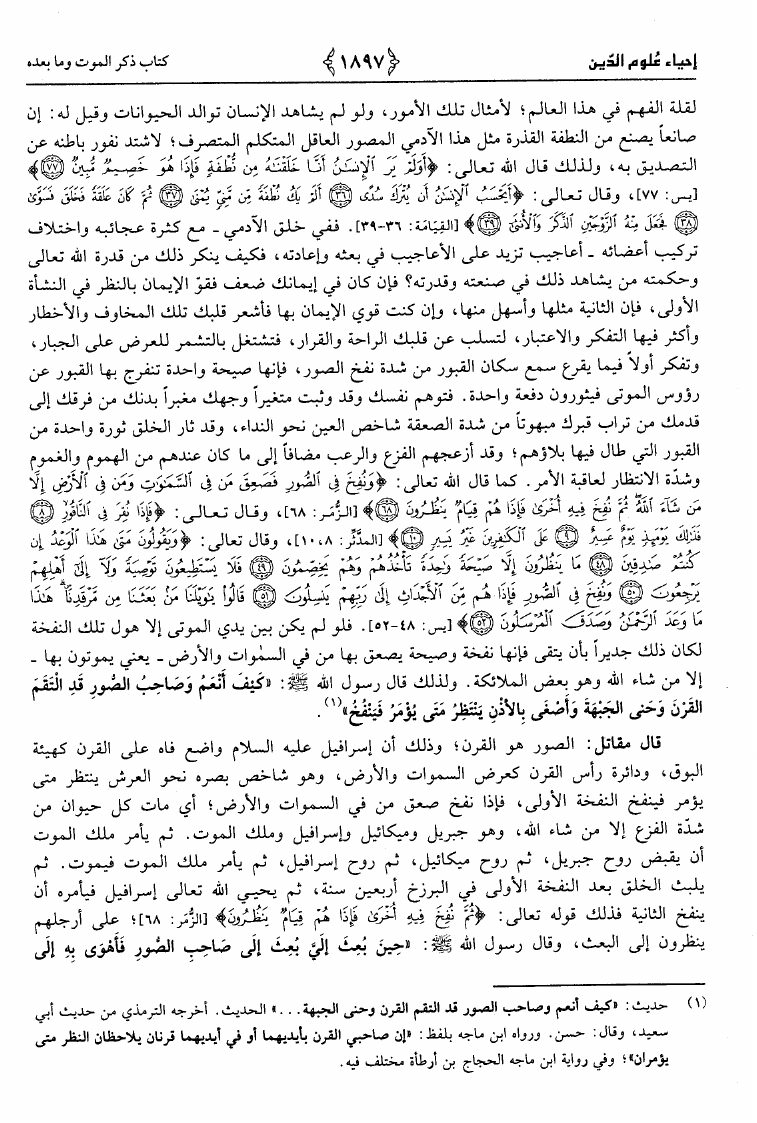 إحياء عُلوم الدّين ﴿١٨٩٧﴾ كتاب ذكر الموت وما بعده
لقلة الفهم في هذا العالم؛ لأمثال تلك الأمور، ولو لم يشاهد الإنسان توالد الحيوانات وقيل له: إن
صانعاً يصنع من النطفة القذرة مثل هذا الآدمي المصور العاقل المتكلم المتصرف؛ لاشتد نفور باطنه عن
التصديق به، ولذلك قال الله تعالى: ﴿أَوَلَمْ يَرَ الْإِنسَانُ أَنَّا خَلَقْنَاهُ مِن نُّطْفَةٍ فَإِذَا هُوَ خَصِيمٌ مُّبِينٌ ﴿٧٧﴾﴾
[يس: ٧٧]، وقال تعالى: ﴿أَيَحْسَبُ الْإِنسَانُ أَن يُتْرَكَ سُدًى ﴿٣٦﴾ أَلَمْ يَكُ نُطْفَةً مِّن مَّنِيٍّ يُمْنَى ﴿٣٧﴾ ثُمَّ كَانَ عَلَقَةً فَخَلَقَ فَسَوَّى
﴿٣٨﴾ فَجَعَلَ مِنْهُ الزَّوْجَيْنِ الذَّكَرَ وَالْأُنثَى ﴿٣٩﴾﴾ [القِيَامَة: ٣٦-٣٩]. ففي خلق الآدمي ـ مع كثرة عجائبه واختلاف
تركيب أعضائه ـ أعاجيب تزيد على الأعاجيب في بعثه وإعادته، فكيف ينكر ذلك من قدرة الله تعالى
وحكمته من يشاهد ذلك في صنعته وقدرته؟ فإن كان في إيمانك ضعف فقوّ الإيمان بالنظر في النشأة
الأولى، فإن الثانية مثلها وأسهل منها، وإن كنت قوي الإيمان بها فأشعر قلبك تلك المخاوف والأخطار
وأكثر فيها التفكر والاعتبار، لتسلب عن قلبك الراحة والقرار، فتشتغل بالتشمر للعرض على الجبار،
وتفكر أولاً فيما يقرع سمع سكان القبور من شدة نفخ الصور، فإنها صيحة واحدة تنفرج بها القبور عن
رؤوس الموتى فيثورون دفعة واحدة. فتوهم نفسك وقد وثبت متغيراً وجهك مغبراً بدنك من فرقك إلى
قدمك من تراب قبرك مبهوتاً من شدة الصعقة شاخص العين نحو النداء، وقد ثار الخلق ثورة واحدة من
القبور التي طال فيها بلاؤهم؛ وقد أزعجهم الفزع والرعب مضافاً إلى ما كان عندهم من الهموم والغموم
وشدّة الانتظار لعاقبة الأمر. كما قال الله تعالى: ﴿وَنُفِخَ فِي الصُّورِ فَصَعِقَ مَن فِي السَّمَاوَاتِ وَمَن فِي الْأَرْضِ إِلَّا
مَن شَاءَ اللَّهُ ثُمَّ نُفِخَ فِيهِ أُخْرَى فَإِذَا هُمْ قِيَامٌ يَنظُرُونَ ﴿٦٨﴾﴾ [الزُّمَر: ٦٨]، وقال تعالى: ﴿فَإِذَا نُقِرَ فِي النَّاقُورِ ﴿٨﴾
فَذَلِكَ يَوْمَئِذٍ يَوْمٌ عَسِيرٌ ﴿٩﴾ عَلَى الْكَافِرِينَ غَيْرُ يَسِيرٍ ﴿١٠﴾﴾ [المدَّثِّر: ٨،١٠]، وقال تعالى: ﴿وَيَقُولُونَ مَتَى هَذَا الْوَعْدُ إِن
كُنتُمْ صَادِقِينَ ﴿٤٨﴾ مَا يَنظُرُونَ إِلَّا صَيْحَةً وَاحِدَةً تَأْخُذُهُمْ وَهُمْ يَخِصِّمُونَ ﴿٤٩﴾ فَلَا يَسْتَطِيعُونَ تَوْصِيَةً وَلَا إِلَى أَهْلِهِمْ
يَرْجِعُونَ ﴿٥٠﴾ وَنُفِخَ فِي الصُّورِ فَإِذَا هُم مِّنَ الْأَجْدَاثِ إِلَى رَبِّهِمْ يَنسِلُونَ ﴿٥١﴾ قَالُوا يَا وَيْلَنَا مَن بَعَثَنَا مِن مَّرْقَدِنَا هَذَا
مَا وَعَدَ الرَّحْمَنُ وَصَدَقَ الْمُرْسَلُونَ ﴿٥٢﴾﴾ [يس: ٤٨-٥٢]. فلو لم يكن بين يدي الموتى إلا هول تلك النفخة
لكان ذلك جديراً بأن يتقى فإنها نفخة وصيحة يصعق بها من في السمٰوات والأرض ـ يعني يموتون بها ـ
إلا من شاء الله وهو بعض الملائكة. ولذلك قال رسول الله ﷺ: «كَيْفَ أَنْعَمُ وَصَاحِبُ الصُّورِ قَدِ الْتَقَمَ
القَرْنَ وَحَنى الجَبْهَةَ وَأَصْغَى بِالأُذُنِ يَنْتَظِرُ مَتى يُؤْمَرُ فَيَنْفُخُ»(١).
قال مقاتل: الصور هو القرن؛ وذلك أن إسرافيل عليه السلام واضع فاه على القرن كهيئة
البوق، ودائرة رأس القرن كعرض السموات والأرض، وهو شاخص بصره نحو العرش ينتظر متى
يؤمر فينفخ النفخة الأولى، فإذا نفخ صعق من في السموات والأرض؛ أي مات كل حيوان من
شدّة الفزع إلا من شاء الله، وهو جبريل وميكائيل وإسرافيل وملك الموت. ثم يأمر ملك الموت
أن يقبض روح جبريل، ثم روح ميكائيل، ثم روح إسرافيل، ثم يأمر ملك الموت فيموت. ثم
يلبث الخلق بعد النفخة الأولى في البرزخ أربعين سنة، ثم يحيي الله تعالى إسرافيل فيأمره أن
ينفخ الثانية فذلك قوله تعالى: ﴿ثُمَّ نُفِخَ فِيهِ أُخْرَى فَإِذَا هُمْ قِيَامٌ يَنظُرُونَ﴾ [الزُّمَر: ٦٨]؛ على أرجلهم
ينظرون إلى البعث، وقال رسول الله ﷺ: «حِينَ بُعِثَ إِلَيَّ بُعِثَ إِلَى صَاحِبِ الصُّورِ فَأَهْوَى بِهِ إِلَى
(١) حديث: «كيف أنعم وصاحب الصور قد التقم القرن وحنى الجبهة...» الحديث. أخرجه الترمذي من حديث أبي
سعيد، وقال: حسن. ورواه ابن ماجه بلفظ: «إن صاحبي القرن بأيديهما أو في أيديهما قرنان يلاحظان النظر متى
يؤمران»؛ وفي رواية ابن ماجه الحجاج بن أرطأة مختلف فيه.